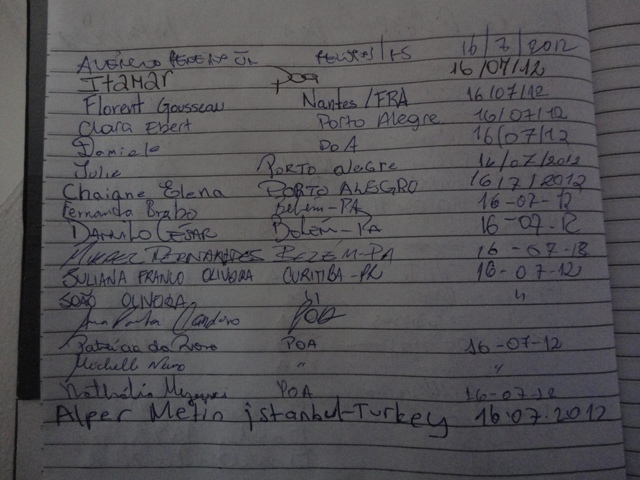 PELOTAS/RS 16/7/2012
Itamar poa 16/07/12
Florent Gousseau Nantes/FRA 16/07/12
Clara Ebert Porto Alegre 16/07/12
Daniela POA 16/07/12
Julie PORTO alegre 16/07/2012
Chaigne Elena PORTO ALEGRO 16/7/2012
Fernanda Brabo Belém-PA 16-07-12
DANILO CESAR BELÉM-PA 16-07-12
BELÉM-PA 16-07-12
JULIANA FRANCO OLIVEIRA CURITIBA-PR 16-07-12
OLIVEIRA " "
Ana Paula POA
POA 16-07-12
Michelle " "
Nathália POA 16-07-12
Alper Metin istanbul-Turkey 16.07.2012